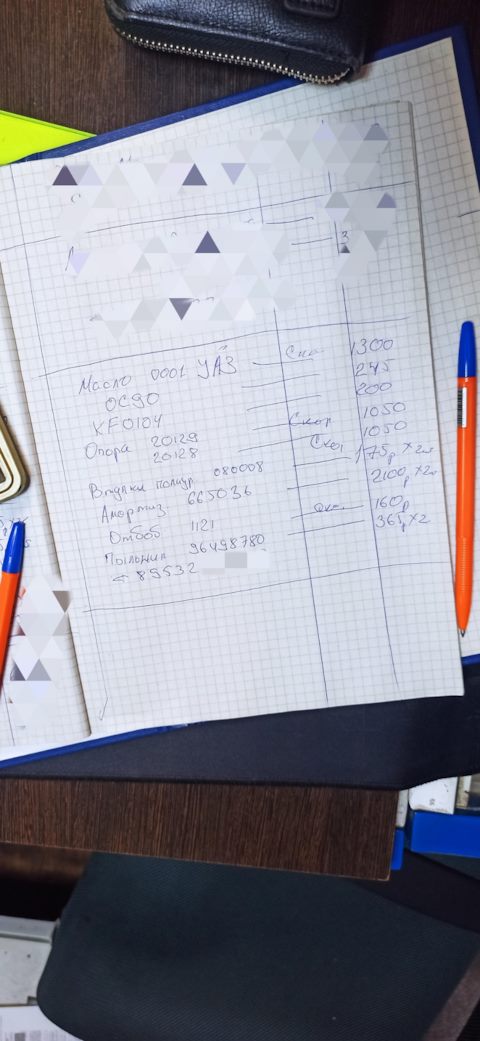 Масло 0001 УАЗ 1300
ОС90 245
KF0104 200
Опора 20129 Скор 1050
20128 1050
Втулки полиур. 080008 175р × 2шт
Амортиз. 665036 2100р × 2шт
Отбоб 1121 160р
Пыльник 96498780 365р × 2
89532